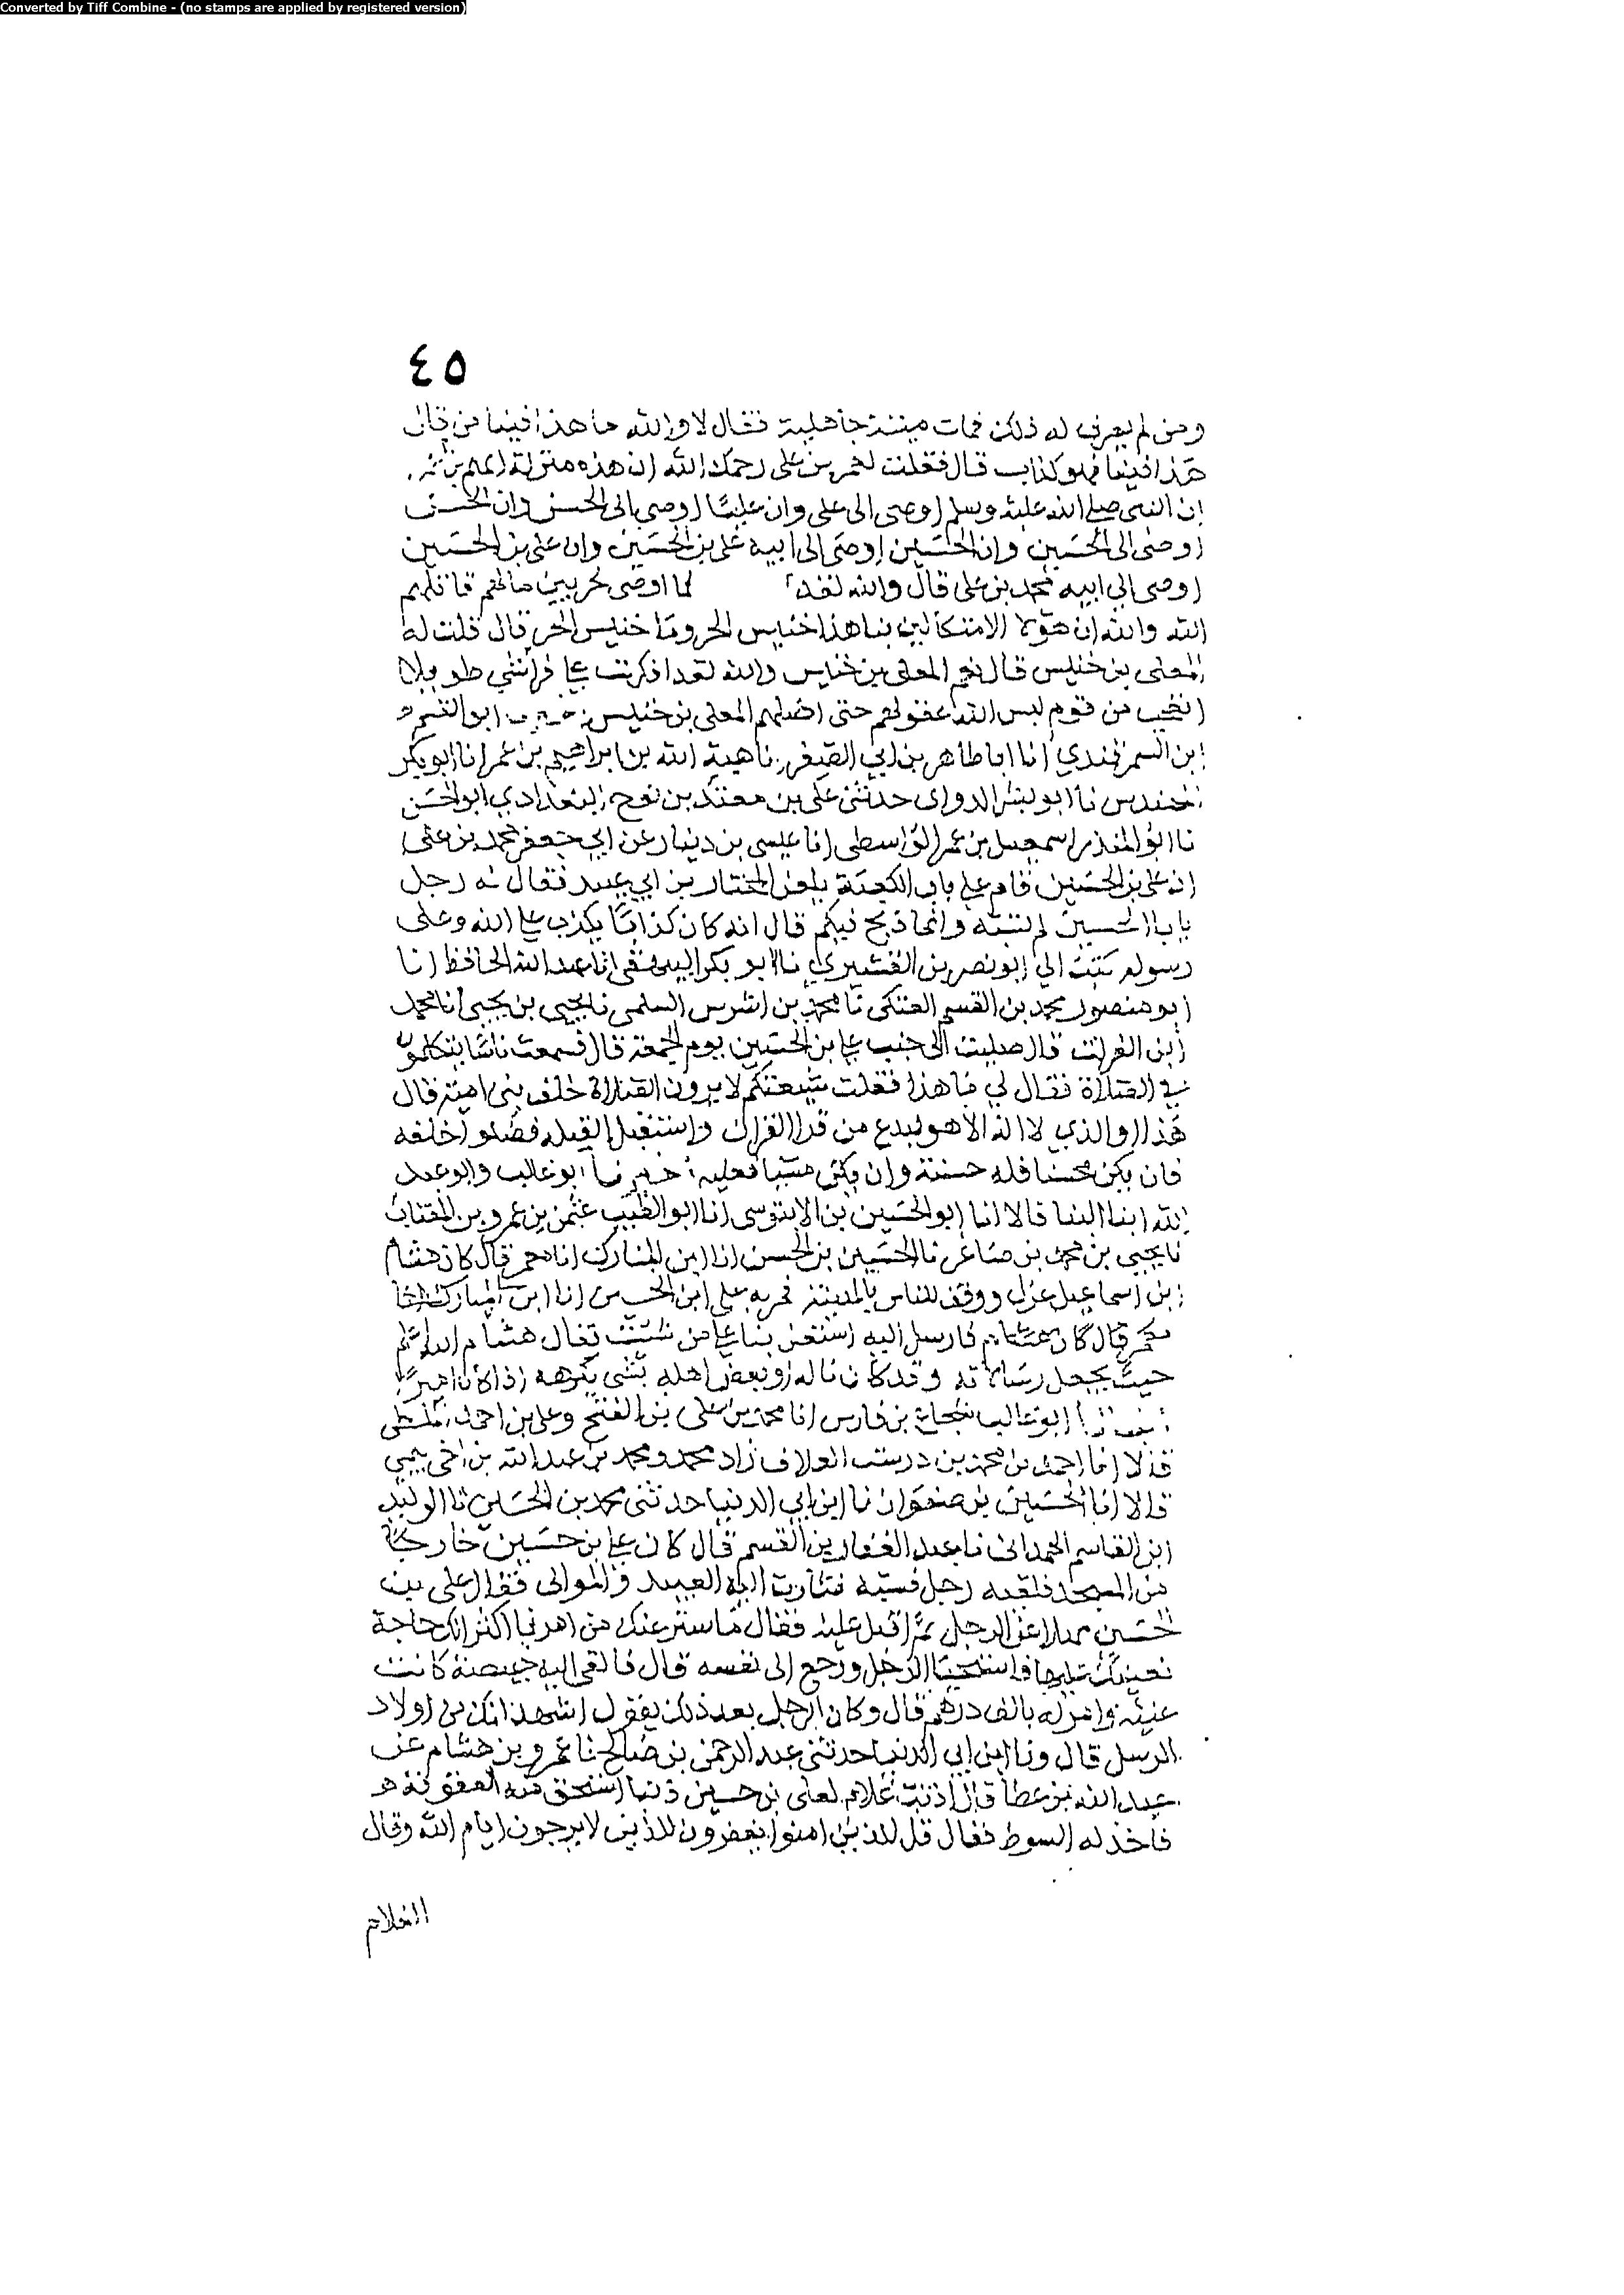 Converted by Tiff Combine - (no stamps are applied by registered version)
٤٥
ومن لم يعرف له ذلك فمات ميتة جاهلية فقال لا والله ما هذا فينا من قال
هذا فينا فهو كذاب قال فقلت لعمر بن على رحمك الله ان هذه منزلة
ان النبى صلى الله عليه وسلم اوصى الى على وان عليا اوصى الى الحسن وان الحسن
اوصى الى الحسين وان الحسين اوصى الى ابيه على بن الحسين وان على بن الحسين
اوصى الى ابيه محمد بن على قال والله لقد ما اوصى بحرفين مالهم قاتلهم
الله والله ان هؤلا الا متكالين بنا هذا خنيس الحر وما خنيس الحر قال قلت له
المعلى بن خنيس قال نعم المعلى بن خنيس والله لقد اذكرت على فراشى طويلا
اتعجب من قوم لبس الله عقولهم حتى اضلهم المعلى بن خنيس ابو القسم
ابن السمرقندي انا ابا طاهر بن ابى الصقر نا هبة الله بن ابراهيم بن عمر انا ابو بكر
المهندس نا ابو بشر الدولابى حدثنى على بن معبد بن نوح البغدادي ابو الحسن
نا ابو المنذر اسمعيل بن عمر الواسطى انا عيسى بن دينار عن ابى جعفر محمد بن على
ان على بن الحسين قام على باب الكعبة يلعن المختار بن ابى عبيد فقال له رجل
يابا الحسين لم تسبه وانما ذبح فيكم قال انه كان كذابا يكذب على الله وعلى
رسوله كتب الى ابو نصر بن القشيرى نا ابو بكر البيهقى انا عبد الله الحافظ انا
ابو منصور محمد بن القسم العتكى نا محمد بن اشرس السلمى نا يحيى بن يحيى انا محمد
ابن الفرات قال صليت الى جنب على بن الحسين يوم الجمعة قال فسمعت ناسا يتكلمون
فى الصلاة فقال لى ما هذا فقلت شيعتكم لا يرون الصلاة خلف بنى امية قال
هذا والذي لا اله الا هو لبدع من قرا القران واستقبل القبلة فصلوا خلفه
فان يكن محسنا فله حسنته وان يكن مسيا فعليه اخبرنا ابو غالب وابو عبد
الله ابنا البنا قالا انا ابو الحسين بن الابنوسى انا ابو الطيب عثمن بن عمرو بن المنتاب
نا يحيى بن محمد بن صاعد نا الحسين بن الحسن انا ابن المبارك انا معمر قال كان هشام
ابن اسماعيل عزل ووقف للناس بالمدينة فمر به على ابن الحسين انا ابن المبارك انا
معمر قال كان هشام فارسل اليه استعن بنا على من شيت فقال هشام الله اعلم
حيث يجعل رسالاته وقد كان ناله او بعض اهله بشى يكرهه اذ كان اميرا
انبانا ابو غالب شجاع بن فارس انا محمد بن على بن الفتح وعلى بن احمد الملطى
قالا انا احمد بن محمد بن درست العلاف زاد محمد ومحمد بن عبد الله بن اخى ميمى
قالا انا الحسين بن صفوان نا ابن ابى الدنيا حدثنى محمد بن الحسين نا الوليد
ابن القاسم الهمدانى نا عبد الغفار بن القسم قال كان على بن حسين خارجا
من المسجد فلقيه رجل فسبه فثارت اليه العبيد والموالى فقال على بن
الحسين مهلا عن الرجل ثم اقبل عليه فقال ما ستر عنك من امرنا اكثر الك حاجة
نعينك عليها فاستحيا الرجل ورجع الى نفسه قال فالقى اليه خميصة كانت
عليه وامر له بالف درهم قال وكان الرجل بعد ذلك يقول اشهد انك من اولاد
الرسل قال ونا ابن ابى الدنيا حدثنى عبد الرحمن بن صالح نا عمرو بن هشام عن
عبد الله بن عطا قال اذنب غلام لعلى بن حسين ذنبا استحق منه العقوبة
فاخذ له السوط فقال قل للذين امنوا يغفرون للذين لا يرجون ايام الله وقال
الغلام